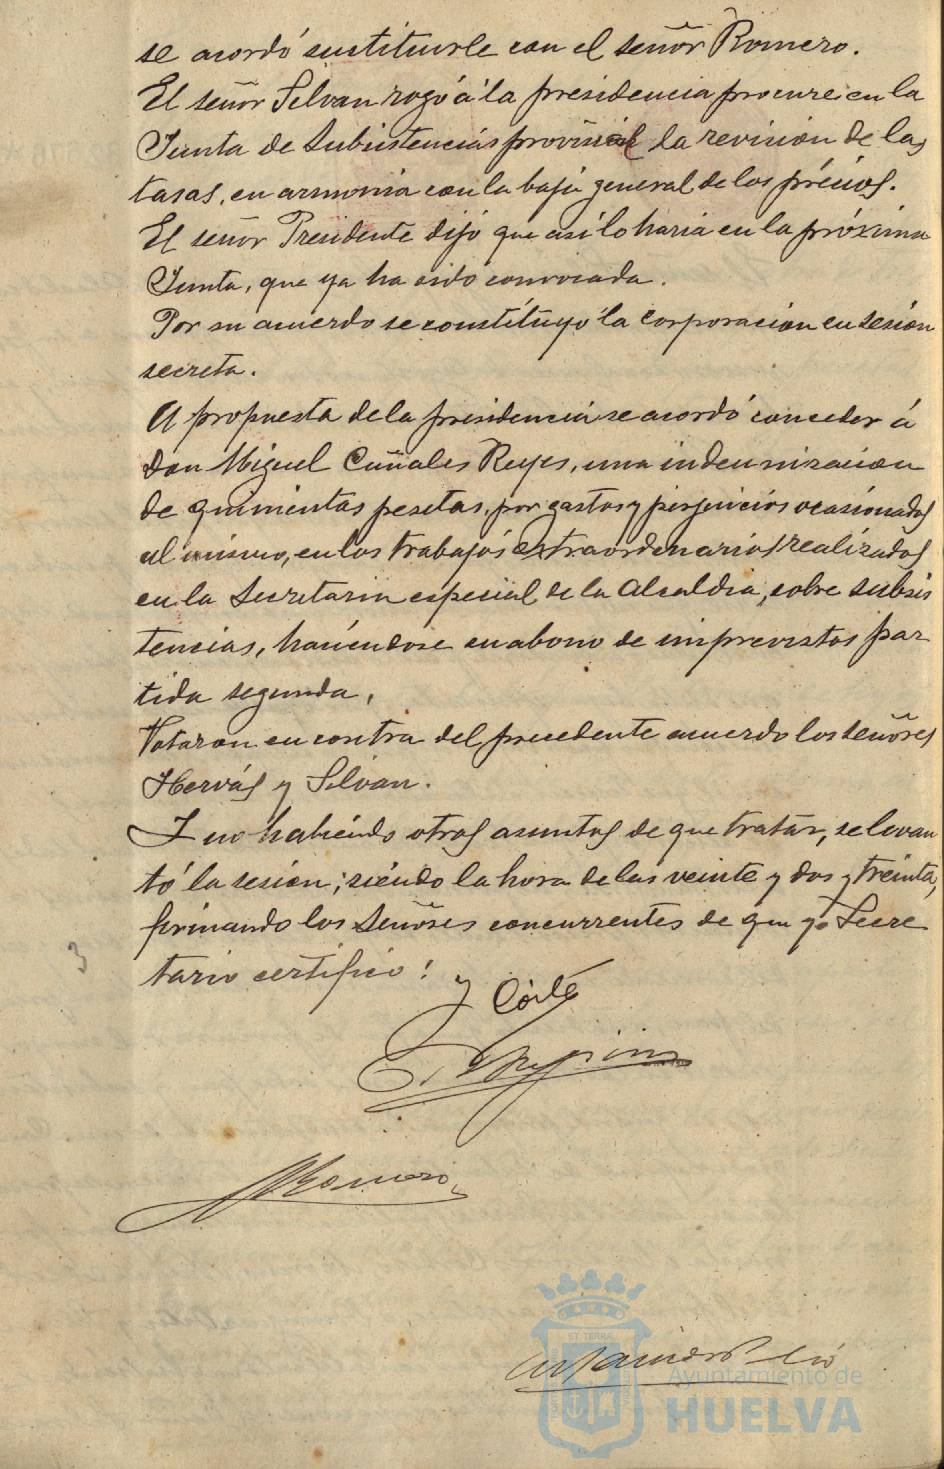 se acordó sustituirle con el señor Romero.
El señor Silvan rogó á la presidencia procure en la
Junta de Subsistencias provincial la revision de las
tasas, en armonia con la baja general de los précios.
El señor Presidente dijo que así lo haria en la próxima
Junta, que ya ha sido convocada.
Por su acuerdo se constituyó la corporacion en sesion
secreta.
A propuesta de la presidencia se acordó conceder á
don Miguel Cuñales Reyes, una indemnizacion
de quinientas pesetas, por gastos y perjuicios ocasionados
al mismo, en los trabajos extraordenarios realizados
en la Secretaria especial de la Alcaldia, sobre subsis
tencias, haciendose en abono de imprevistos par
tida segunda.
Votaron en contra del precedente acuerdo los señores
Hervás y Silvan.
I no habiendo otros asuntos de que tratar, se levan
tó la sesion; siendo la hora de las veinte y dos y treinta,
firmando los Señores concurrentes de que yo Secre
tario certifico:
y Corte
Romero
ET TERRA
Ayuntamiento de
HUELVA